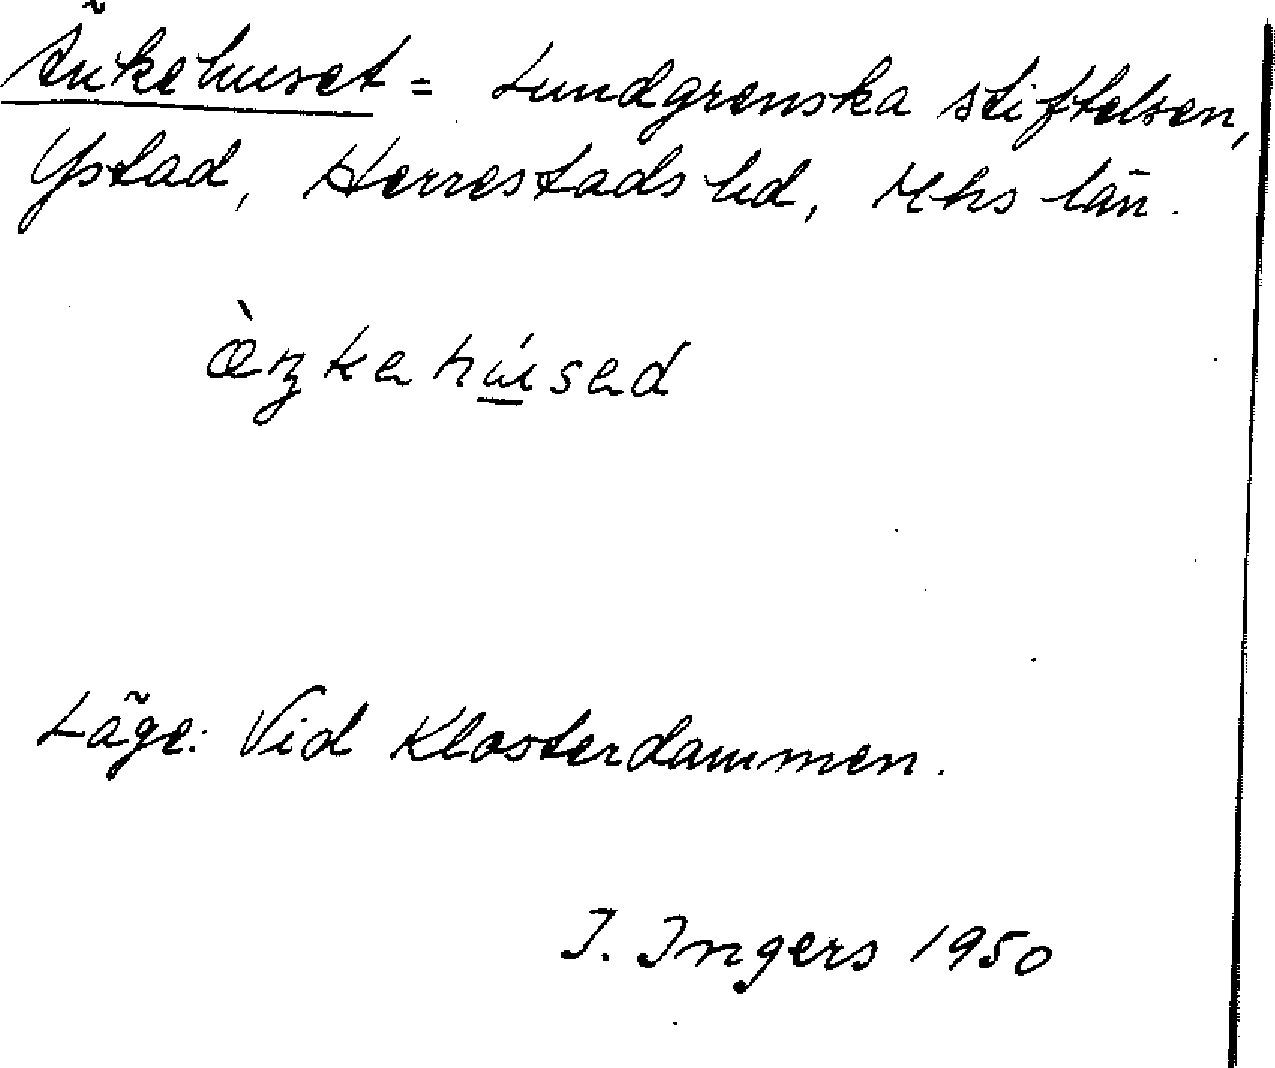 Änkehuset = Lundgrenska stiftelsen,
Ystad, Herrestads hd, Mhs län.
æ̀ŋkehúsed
Läge: Vid Klosterdammen.
I. Ingers 1950